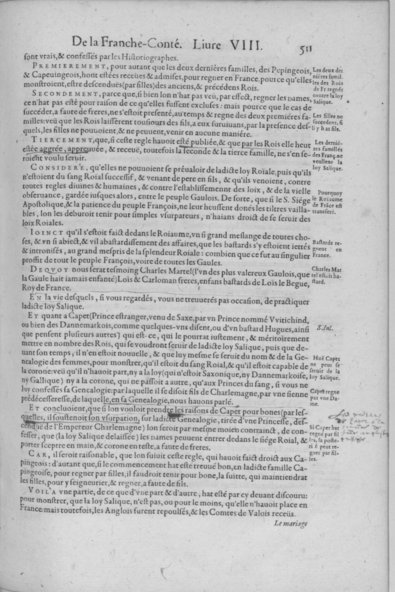 De la Franche-Conté. Liure VIII. 511
sont vrais, & confessés par les Historiographes.
PREMIEREMENT, pour autant que les deux derniéres familles, des Pepingeois,
& Capeuingeois, hont estées receües & admises, pour regner en France, pource qu'elles
monstroient, estre descendues, par filles, des anciens, & précédens Rois.
SECONDEMENT, parce que, si bien lon n'hat pas veü, par effect, regner les Dames,
ce n'hat pas esté pour raison de ce qu'elles fussent excluses: mais pource que le cas de
succéder, à faute de freres, ne s'estoit presenté, au temps & regne des deux premieres fa-
milles: veü que les Rois laisserent tousiours des fils, à eux suruiuans, par la presence des-
quels, les filles ne pouuoient, & ne peuuent, venir en aucune maniére.
TIERCEMENT, que, si ceste regle hauoit esté publiée, & que par les Rois elle heut
estée aggreée, approuuée, & receuë, toutefois la seconde & la tierce famille, ne s'en se-
roient voulu seruir.
CONSIDERÉ, qu'elles ne pouuoient se préualoir de ladicte loy Roiale, puis qu'ils
n'estoient du sang Roial successif, & venant de pere en fils, & qu'ils venoient, contre
toutes regles diuines & humaines, & contre l'establissement des loix, & de la vieille
obseruance, gardée iusques alors, entre le peuple Gaulois. De sorte, que si le S. Siége
Apostolique, & la patience du peuple François, ne leur heussent donés les tiltres vailla-
bles, lon les deburoit tenir pour simples vsurpateurs, n'haians droict de se seruir des
loix Roiales.
IOINCT qu'il s'estoit faict dedans le Roiaume, vn si grand meslange de toutes cho-
ses, & vn si abiect, & vil abastardissement des affaires, que les bastards s'y estoient iettés
& intronisés, au grand mespris de la splendeur Roiale: combien que ce fut au singulier
proffit de tout le peuple François, voire de toutes les Gaules.
DEQVOY nous serat tesmoing Charles Martel (l'vn des plus valereux Gaulois, que
la Gaule hait iamais enfanté) Loïs & Carloman freres, enfans bastards de Lois le Begue,
Roy de France.
EN la vie desquels, si vous regardés, vous ne treuuerés pas occasion, de practiquer
ladicte loy Salique.
ET quant a Capet (Prince estranger, venu de Saxe, par vn Prince nommé Vvitichind,
ou bien des Dannemarkois, comme quelques-vns disent, ou d'vn bastard Hugues, ainsi
que pensent plusieurs autres) qui est-ce, qui le pourrat iustement, & méritoirement
mettre en nombre des Rois, qui se voudront seruir de ladicte loy Salique, puis que de-
uant son temps, il n'en estoit nouuelle, & que luy mesme se seruit du nom & de la Ge-
nealogie des femmes, pour monstrer, qu'il estoit du sang Roial, & qu'il estoit capable de
la corone: veü qu'il n'hauoit part, ny a la loy (qu'il estoit Saxonique, ny Dannemarkoise,
ny Gallique) ny a la corone, qui ne passoit a autre, qu'aux Princes du sang, si vous ne
luy confessés sa Genealogie par laquelle il se disoit fils de Charlemagne, par vne sienne
prédécesseresse, de laquelle, en sa Genealogie, nous hauons parlé.
ET concluoient, que si lon vouloit prendre les raisons de Capet pour bones (par les-
quelles, il soustenoit son vsurpation, sur ladicte Genealogie, tirée d'vne Princesse, des-
cendue de l'Empereur Charlemagne) lon seroit par mesme moien contrainct, de con-
fesser, que (la loy Salique delaissée) les Dames peuuent entrer dedans le siége Roial, &
porter sceptre en main, & corone en teste, a faute de freres.
CAR, il seroit raisonable, que lon suiuit ceste regle, qui hauoit faict droict aux Ca-
pingeois: d'autant que, si le commencement hat esté treuué bon, en ladicte famille Ca-
pingeoise, pour regner par filles, il faudroit tenir pour bone, la suitte, qui maintiendrat
les filles, pour y seigneurier, & regner, a faute de fils.
VOILA vne partie, de ce que d'vne part & d'autre, hat esté par cy deuant discouru:
pour monstrer, que la loy Salique, n'est pas, ou pour le moins, qu'elle n'hauoit place en
France mais toutefois, les Anglois furent repoulsés, & les Comtes de Valois receüs.
Le mariage
Les filles ne
succedent, si
il y ha fils.
Pourquoy
le Roiaume
Bastards re-
gnent en
France.
Charles Mar
tel estoit ba-
stard.
S. Iul.
Capet regne
par vne Da-
me.